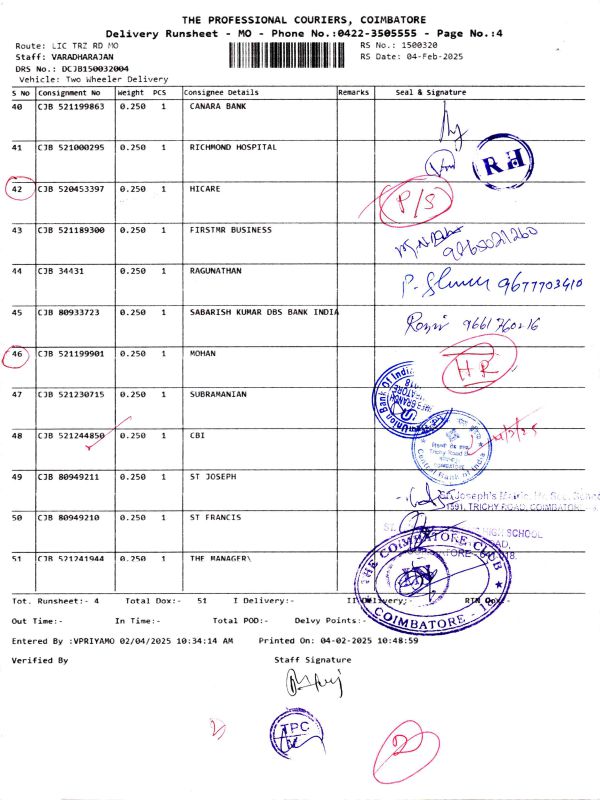 THE PROFESSIONAL COURIERS, COIMBATORE
Delivery Runsheet - MO - Phone No.:0422-3505555 - Page No.:4
Route: LIC TRZ RD MO RS No.: 1500320
Staff: VARADHARAJAN RS Date: 04-Feb-2025
DRS No.: DCJB150032004
Vehicle: Two Wheeler Delivery
S No Consignment No Weight PCS Consignee Details Remarks Seal & Signature
40 CJB 521199863 0.250 1 CANARA BANK
41 CJB 521000295 0.250 1 RICHMOND HOSPITAL
RH
42 CJB 520453397 0.250 1 HICARE P/S
43 CJB 521189300 0.250 1 FIRSTMR BUSINESS
44 CJB 34431 0.250 1 RAGUNATHAN 9677703410
45 CJB 80933723 0.250 1 SABARISH KUMAR DBS BANK INDIA
46 CJB 521199901 0.250 1 MOHAN HR
47 CJB 521230715 0.250 1 SUBRAMANIAN
Union Bank Of India
48 CJB 521244850 0.250 1 CBI
Central Bank of India
49 CJB 80949211 0.250 1 ST JOSEPH
St. Joseph's Matric. Hr. Sec. School
1591, TRICHY ROAD, COIMBATORE
50 CJB 80949210 0.250 1 ST FRANCIS
HIGH SCHOOL
51 CJB 521241944 0.250 1 THE MANAGER\
THE COIMBATORE CLUB
COIMBATORE - 18
Tot. Runsheet:- 4 Total Dox:- 51 I Delivery:- II Delivery:- RTN Qty:-
Out Time:- In Time:- Total POD:- Delvy Points:-
Entered By :VPRIYAMO 02/04/2025 10:34:14 AM Printed On: 04-02-2025 10:48:59
Verified By Staff Signature
TPC
2